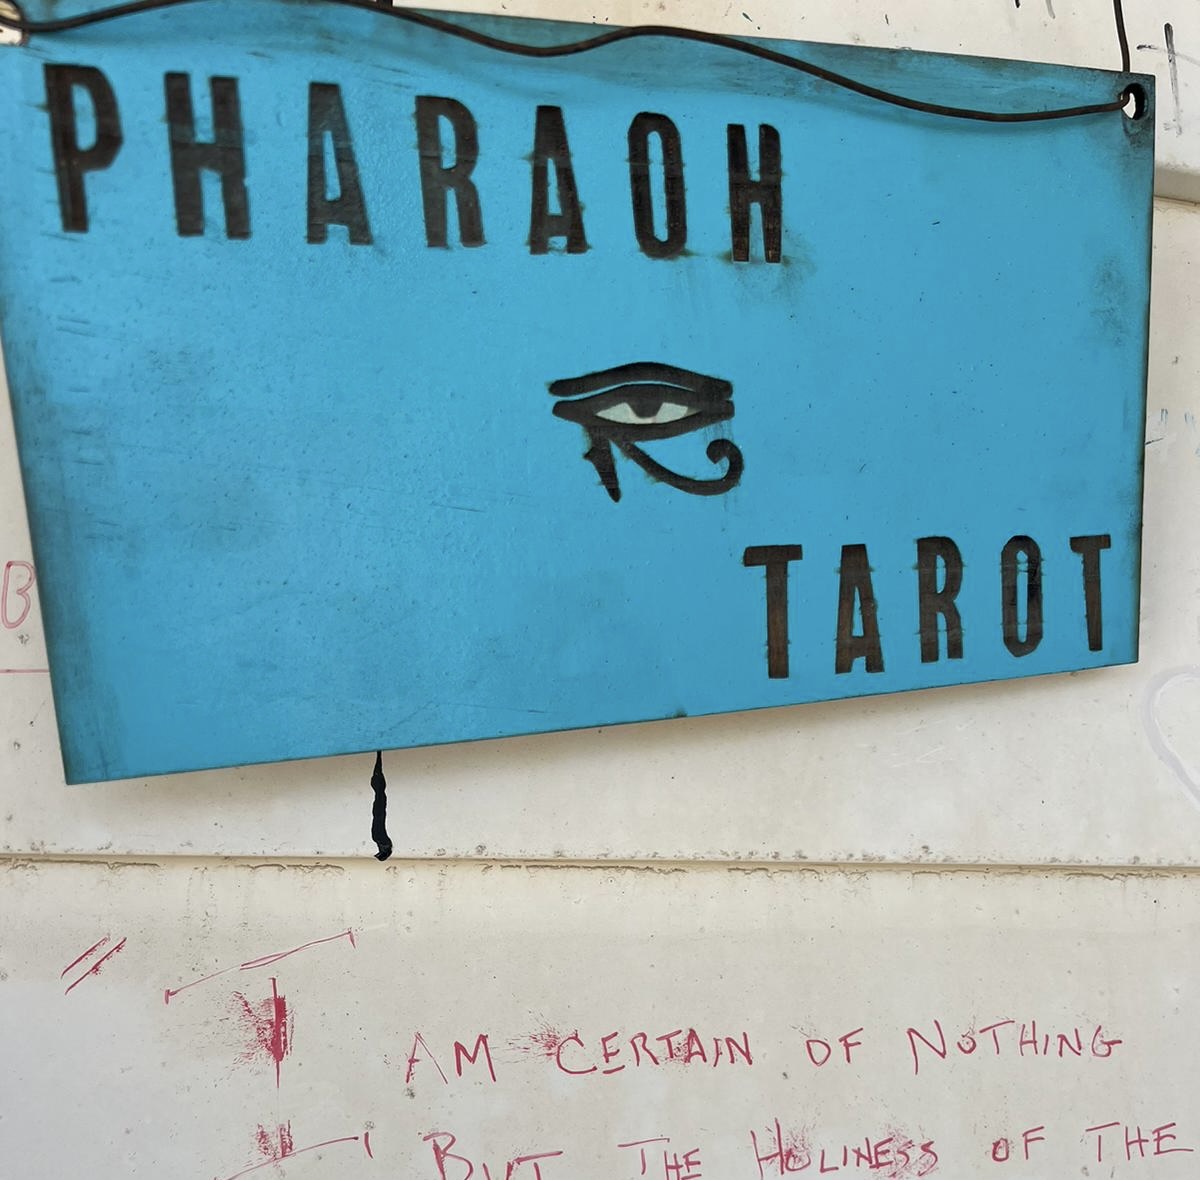 PHARAOH
TAROT
B
" I AM CERTAIN OF NOTHING
BUT THE HOLINESS OF THE